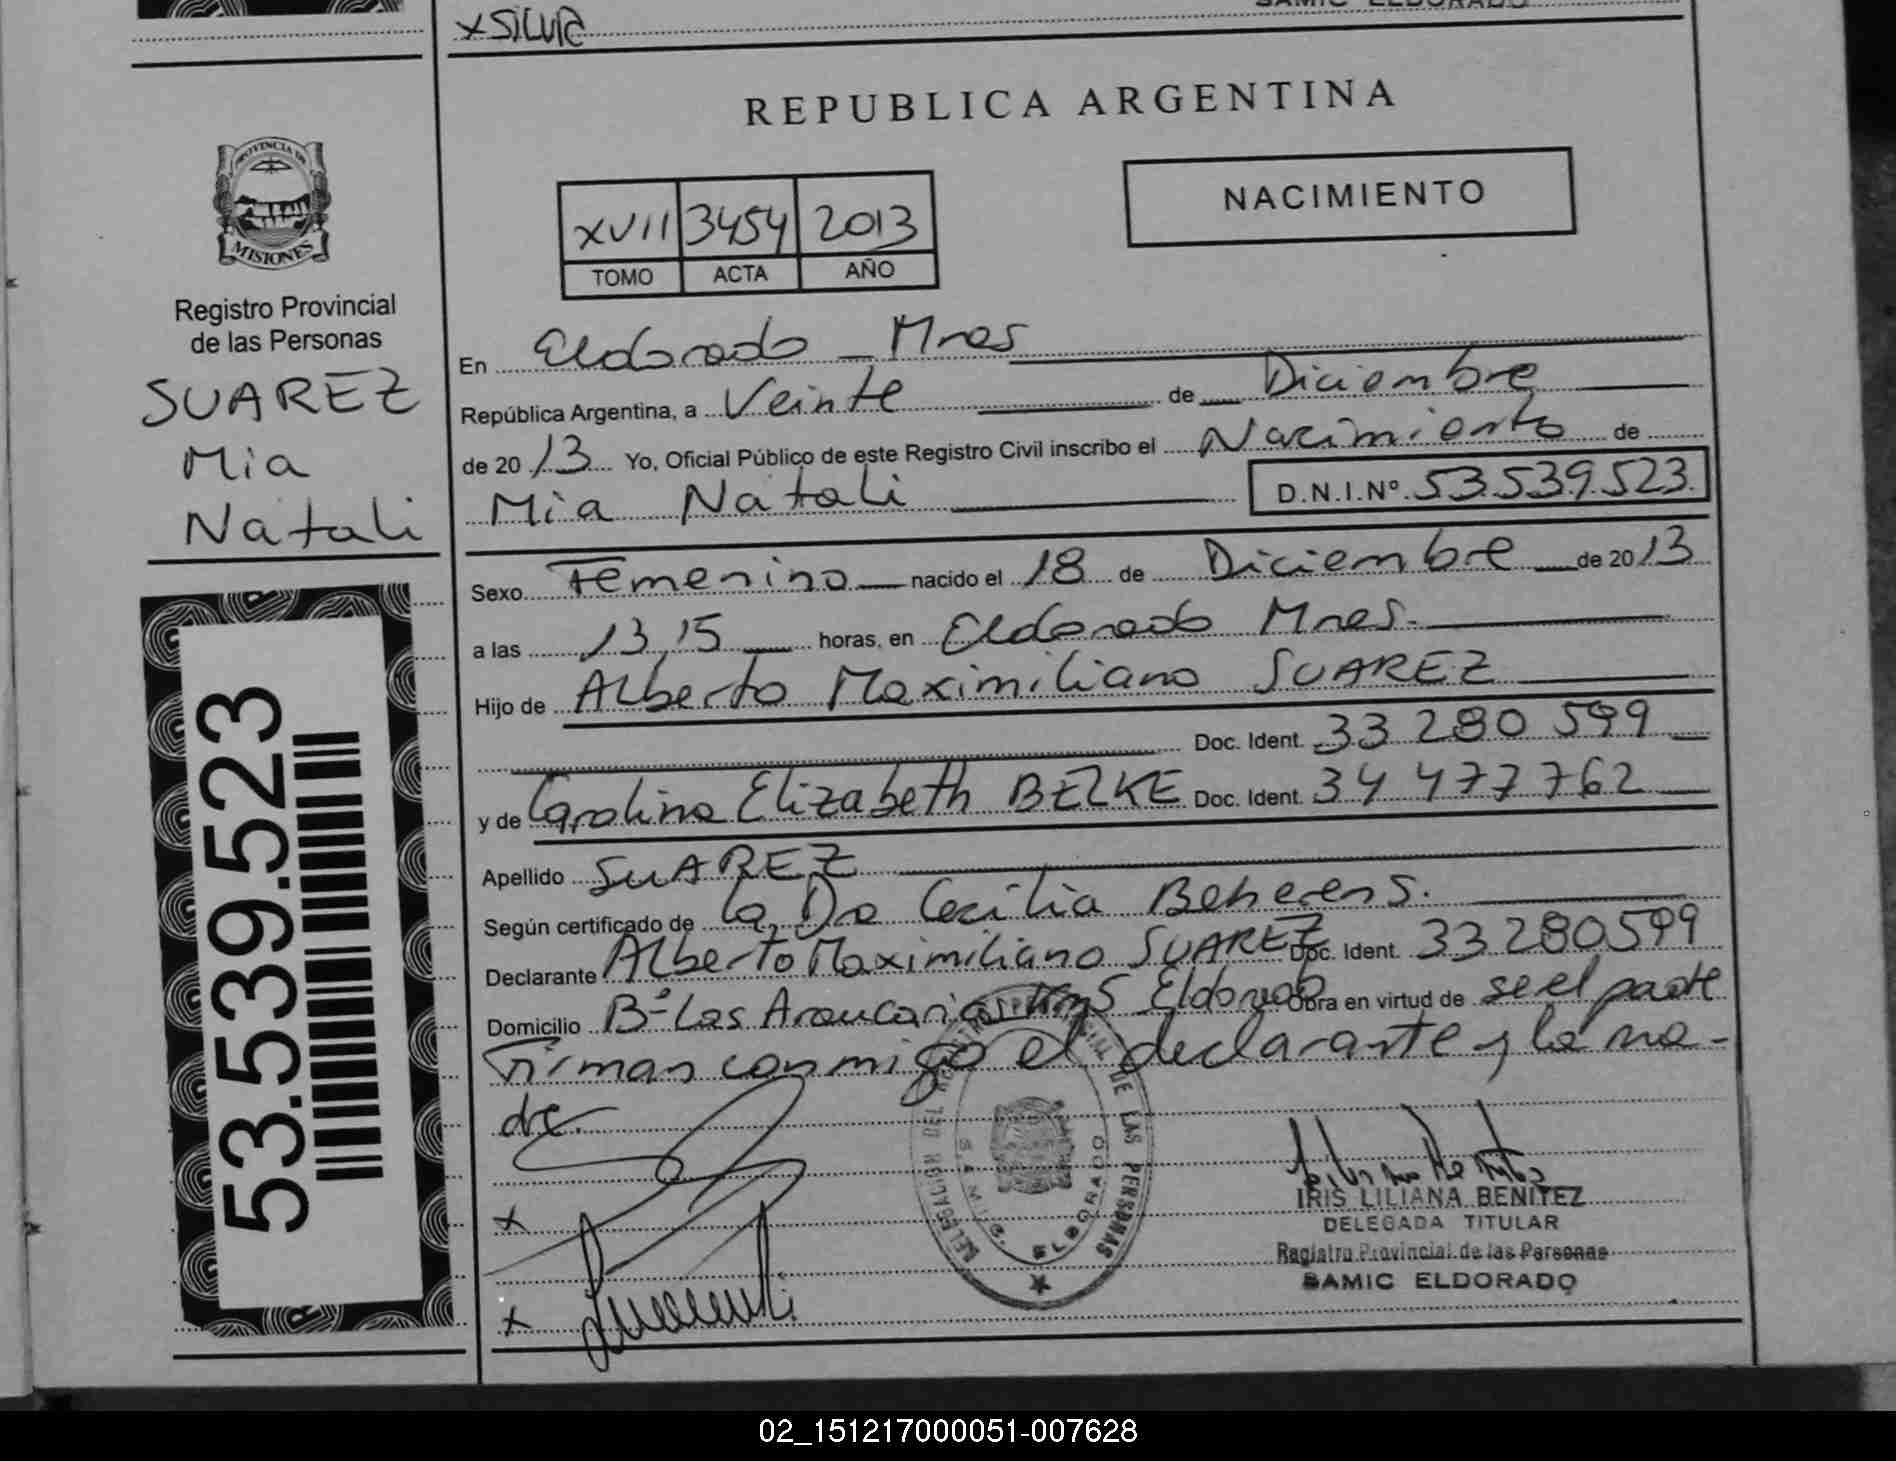 x SILVIA
SAMIC ELDORADO
REPUBLICA ARGENTINA
PROVINCIA DE
MISIONES
Registro Provincial
de las Personas
SUAREZ
Mia
Natali
53.539.523
XVII 3454 2013
TOMO ACTA AÑO
NACIMIENTO
En Eldorado - Mnes
República Argentina, a Veinte de Diciembre
de 20 13 Yo, Oficial Público de este Registro Civil inscribo el Nacimiento de
Mia Natali D.N.I.Nº 53.539.523
Sexo Femenino nacido el 18 de Diciembre de 20 13
a las 13,15 horas, en Eldorado Mnes.
Hijo de Alberto Maximiliano SUAREZ
Doc. Ident. 33 280 599
y de Carolina Elizabeth BEZKE Doc. Ident. 34 477 762
Apellido SUAREZ
Según certificado de la Dra Cecilia Beherens.
Declarante Alberto Maximiliano SUAREZ Doc. Ident. 33280599
Domicilio Bº Las Araucarias Eldorado Obra en virtud de se el parte
Firman conmigo el declarante y la ma-
dre.
DELEGACION DEL REGISTRO PROVINCIAL DE LAS PERSONAS
S.A.M.I.C. ELDORADO
x
x
IRIS LILIANA BENITEZ
DELEGADA TITULAR
Registro Provincial de las Personas
SAMIC ELDORADO
02_151217000051-007628